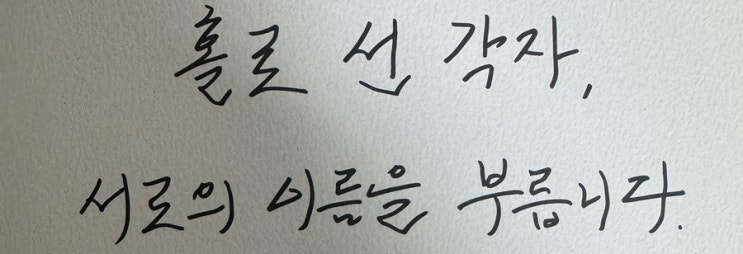 홀로 선 각자,
서로의 이름을 부릅니다.